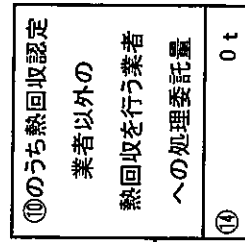 ⑩のうち熱回収認定
業者以外の
熱回収を行う業者
への処理委託量
⑭ 0 t